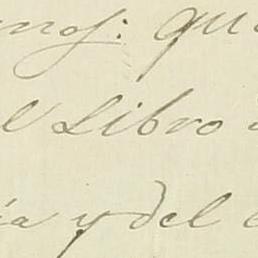 nos: que
el Libro
ia y del